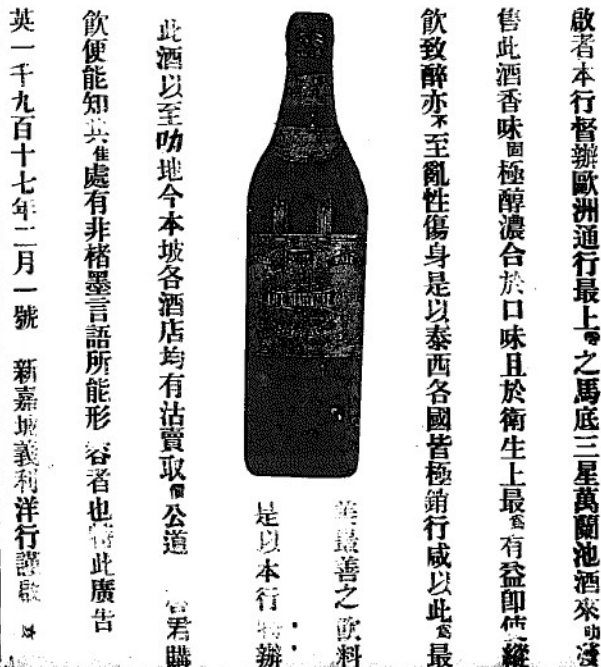 啟者本行督辦歐洲通行最上等之馬底三星萬蘭池酒來叻發
售此酒香味固極醇濃合於口味且於衛生上最為有益即使縱
飲致醉亦不至亂性傷身是以泰西各國皆極銷行咸以此為最
美盡善之飲料
是以本行辦
此酒以至叻地今本坡各酒店均有沽賣取價公道 君購
飲便能知其佳處有非楮墨言語所能形容者也特此廣告
英一千九百十七年二月一號 新嘉坡義利洋行謹啟